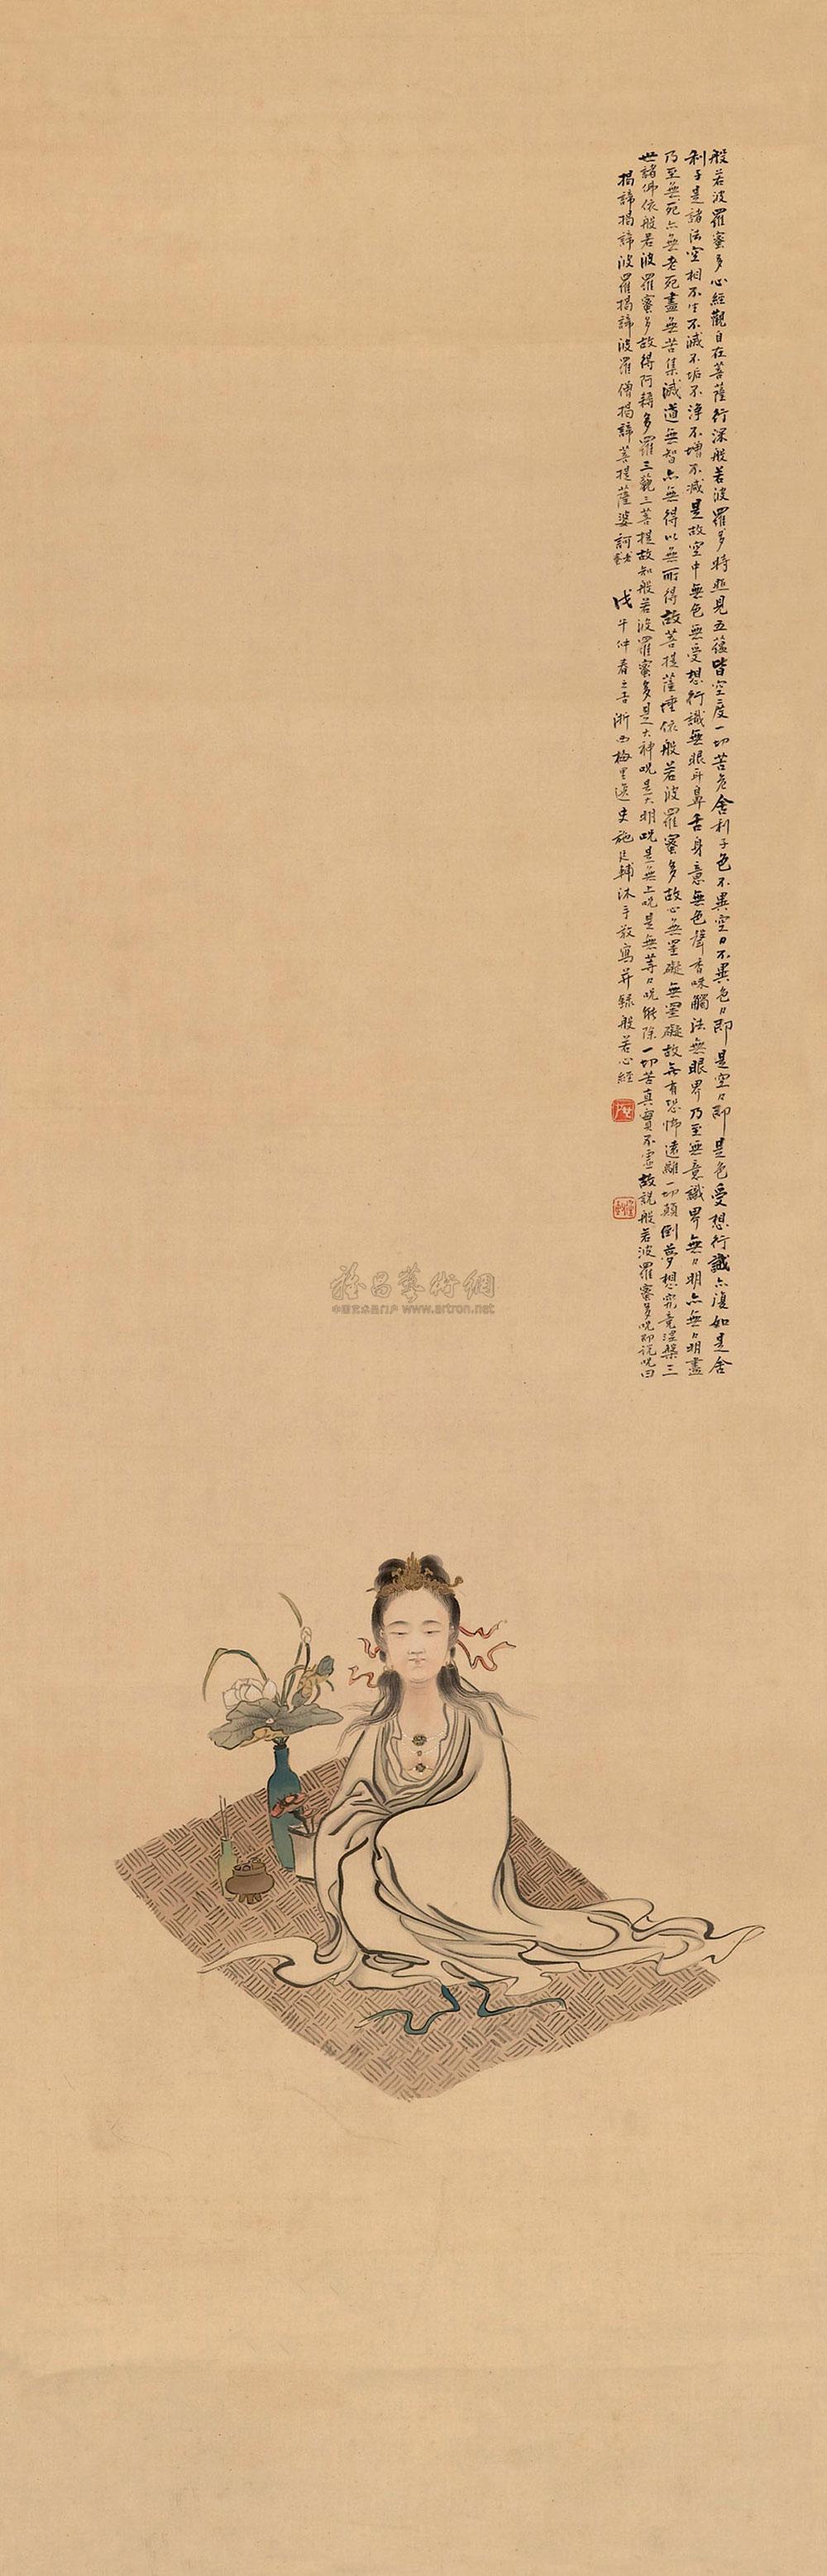 般若波羅蜜多心經觀自在菩薩行深般若波羅多時照見五蘊皆空度一切苦危舍利子色不異空々不異色々即是空々即是色受想行識亦復如是舍
利子是諸法空相不生不滅不垢不淨不增不減是故空中無色無受想行識無眼耳鼻舌身意無色聲香味觸法無眼界乃至無意識界無々明亦無々明盡
乃至無死亦無老死盡無苦集滅道無智亦無得以無所得故菩提薩埵依般若波羅蜜多故心無罣礙無罣礙故無有恐怖遠離一切顛倒夢想究竟涅槃三
世諸佛依般若波羅蜜多故得阿耨多羅三藐三菩提故知般若波羅蜜多是大神咒是大明咒是無上咒是無等々咒能除一切苦真實不虛故說般若波羅蜜多咒即說咒曰
揭諦揭諦波羅揭諦波羅僧揭諦菩提薩婆訶 戊午仲春之吉浙西梅里逸史施廷輔沐手敬寫并錄般若心經
雅昌藝術網
中国艺术品门户 www.artron.net